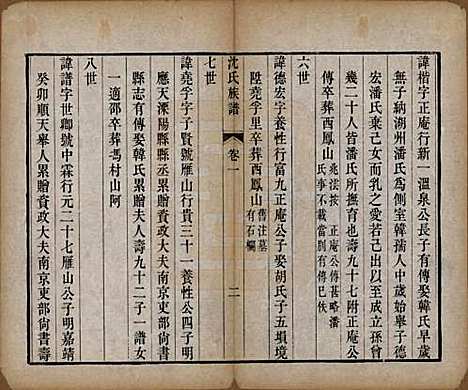 諱楷字正庵行新一溫泉公長子有傳娶韓氏早歲
無子納湖州潘氏爲側室韓孺人中歲始舉子德
宏潘氏棄己女而乳之愛若已出至六世孫立曾
幾二十人皆潘氏所撫育也壽九十七附正庵公
傳卒葬西鳳山
六世
諱德宏字養性行富九正庵公子娶胡氏子五塡境
陞堯孚里卒葬西鳳山舊注墓有石欄
沈氏族譜
卷一
二
七世
諱堯孚字子賢號雁山行貴三十一養性公四子明
應天溧陽縣縣丞累贈資政大夫南京吏部尙書
縣志有傳娶韓氏累贈夫人壽九十二子一譜女
一適邵卒葬馮村山阿
八世
諱譜字世卿號中霖行元二十七雁山公子明嘉靖
癸卯順天舉人累贈資政大夫南京吏部尙書壽